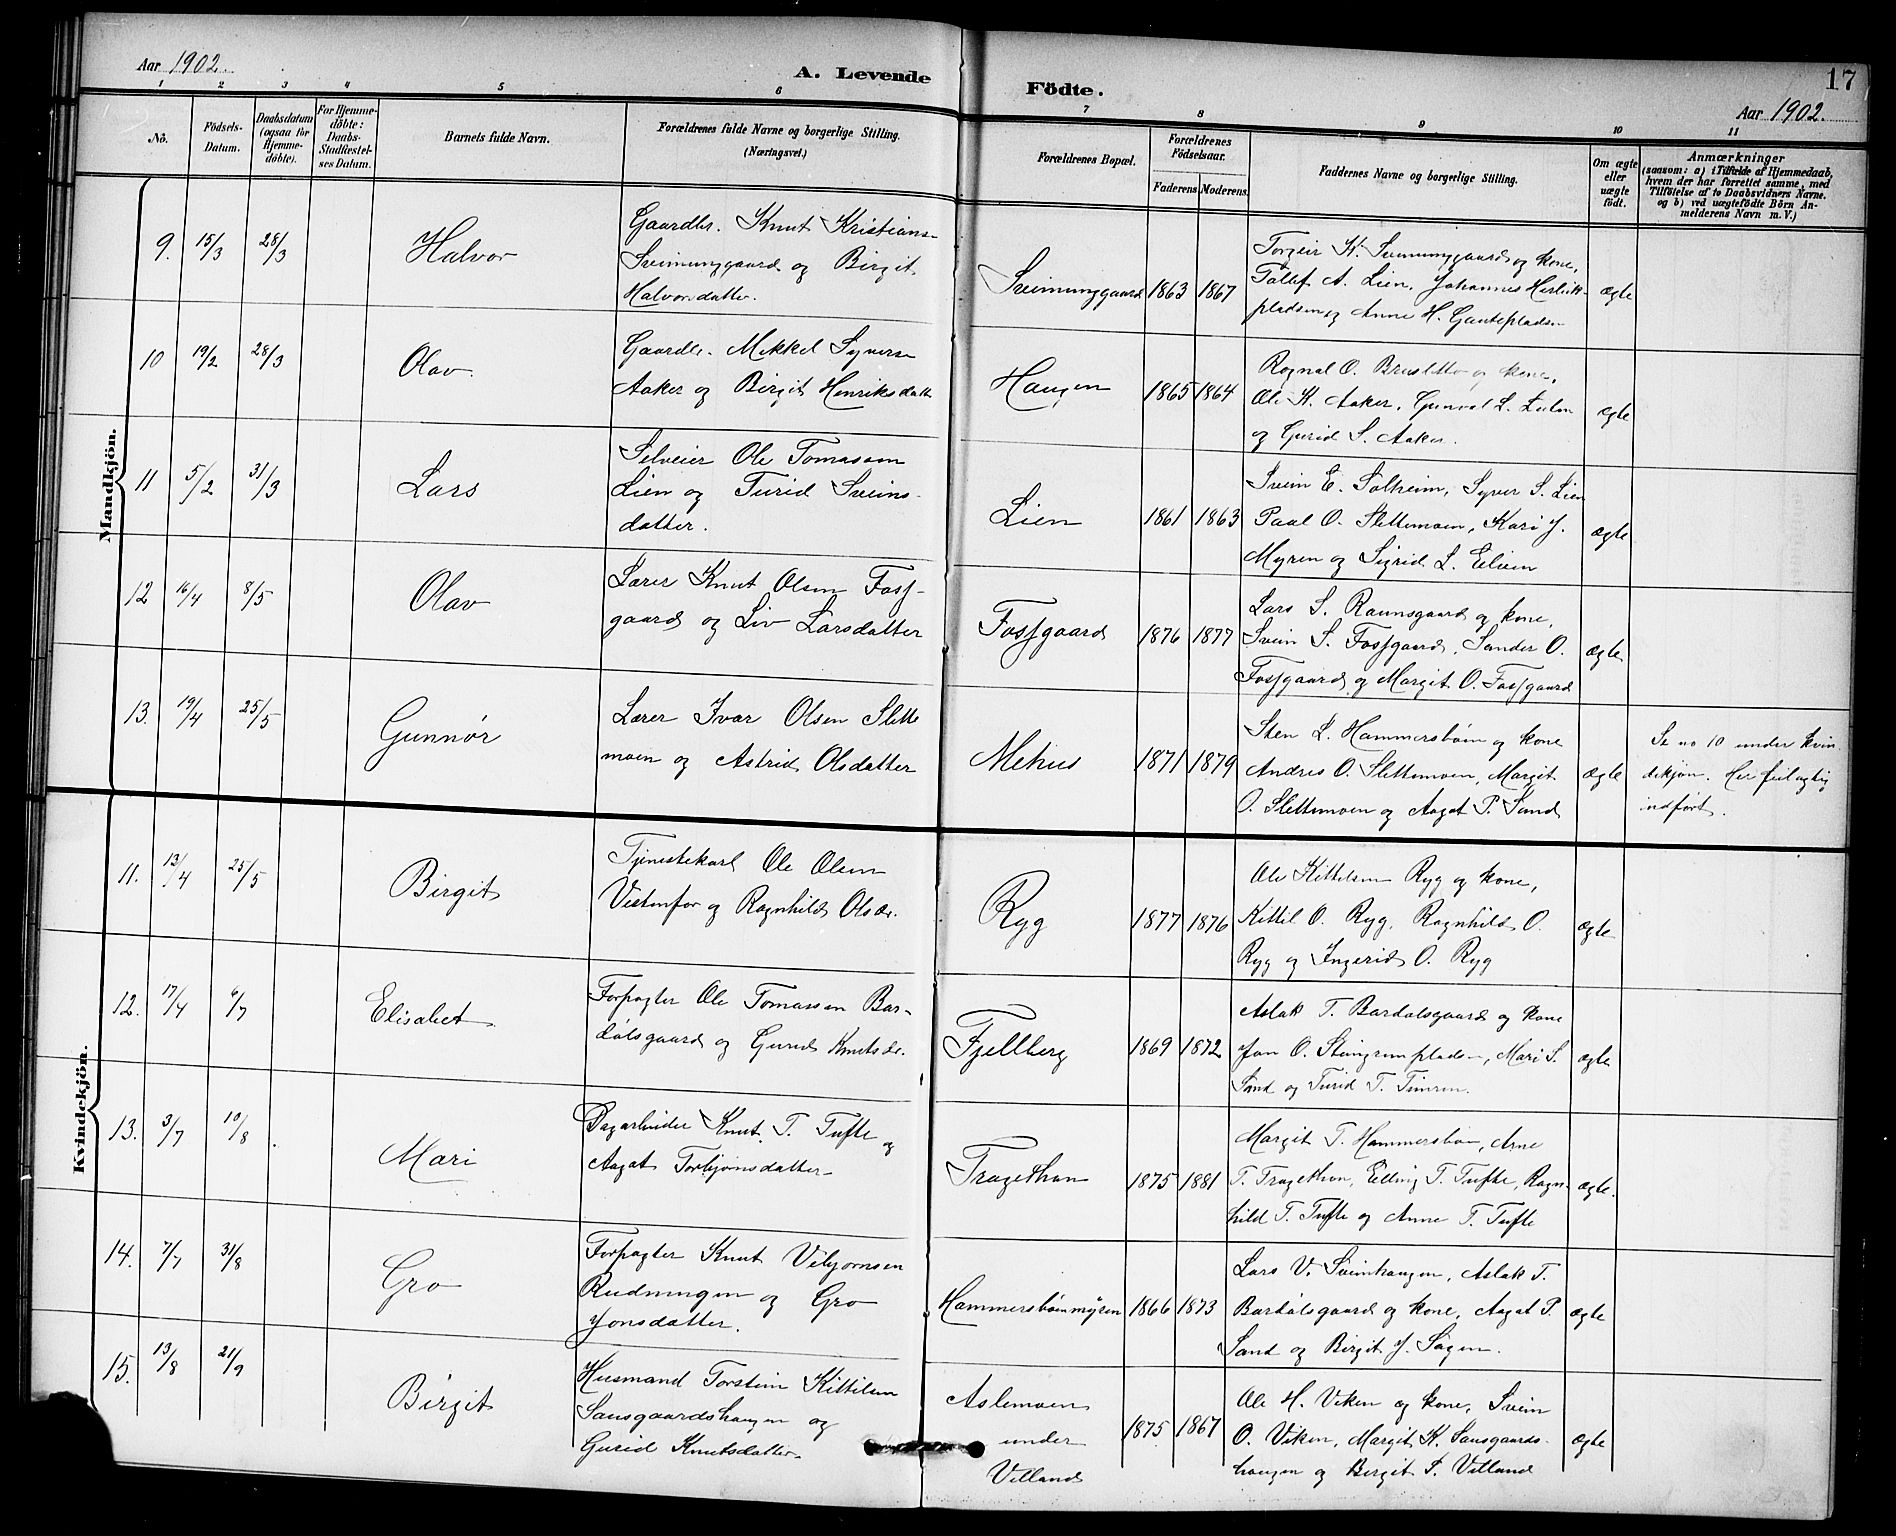 Aar 1902.
A. Levende
Födte.
17
Aar 1902.
1 2 3 4 5 6 7 8 9 10 11
No.
Födsels-
Datum.
Daabsdatum
(ogsaa for
Hjemme-
döbte).
For Hjemme-
döbte:
Daabs-
Stadfæstel-
ses Datum.
Barnets fulde Navn.
Forældrenes fulde Navne og borgerlige Stilling.
(Næringsvei.)
Forældrenes Bopæl.
Forældrenes
Födselsaar.
Faderens. Moderens.
Faddernes Navne og borgerlige Stilling.
Om ægte
eller
uægte
født.
Anmærkninger
(saasom: a) i Tilfælde af Hjemmedaab,
hvem der har forrettet samme, med
Tilföielse af to Daabsvidners Navne.
og b) ved uægtefödte Börn An-
melderens Navn m. V.)
Mandkjön.
9. 15/3 28/3 Halvor
Gaardbr. Knut Kristians-
Sveinunggaard og Birgit
Halvorsdatter.
Sveinunggaard 1863 1867
Torgeir K. Sveinunggaard og kone,
A. Lien, Johannes
pladsen og Anne H. Gautepladsen
ægte
10 19/2 28/3 Olav.
Gaardbr. Mekkel Syversen
Aaker og Birgit Henriksdatter
Haugen 1865 1864
Rognal O. Brusletto og kone,
Ole K. Aaker, Gunvol L.
og Gurid S. Aaker.
ægte
11 5/2 31/3 Lars
Selveier Ole Tomasson
Lien og Turid Sveins-
datter.
Lien 1861 1863
Svein E. Solheim, Syver S. Lien
Paal O. Slettemoen, Kari J.
Myren og Sigrid L. Eliein
ægte
12 16/4 8/5 Olav
Lærer Knut Olsen Foss-
gaard og Liv Larsdatter
Fossgaard 1876 1877
Lars S. Raunsgaard og kone,
Svein S. Fossgaard, Sander O.
Fossgaard og Margit O. Fossgaard
ægte
13. 19/4 25/5 Gunnør
Lærer Ivar Olsen Slette
moen og Astrid Olsdatter
Mehus 1871 1879
Sten L. Hammersbøin og kone
Andres O. Slettemoen, Margit
O. Slettemoen og Aagot P. Sand
ægte
Se no 10 under kvin-
dekjøn. Her feilagtig
indført.
Kvindekjön.
11. 13/4 25/5 Birgit
Tjenestekarl Ole Olsen
Vestenfor og Ragnhild Olsdr.
Ryg 1877 1876
Ole Kittelsen Ryg og kone,
Kittil O. Ryg, Ragnhild O.
Ryg og Ingerid O. Ryg
ægte
12. 17/4 6/7 Elisabet
Forpagter Ole Tomassen Bar-
dølsgaard og Gunild Knutsdr.
Fjellberg 1869 1872
Aslak T. Bardølsgaard og kone
Jon O. Stengrimpladsen, Mari S.
Sand og Turid T. Timren.
ægte
13. 3/7 10/8 Mari
Dagarbeider Knut T. Tufte og
Aagot Torbjønsdatter
Tragethon 1875 1881
Margit T. Hammersbøin, Arne
T. Tragethon, Elling T. Tufte, Ragn-
hild T. Tufte og Anne T. Tufte
ægte.
14. 7/7 31/8 Gro
Forpagter Knut Vebjørnsen
Rudningen og Gro
Jonsdatter.
Hammersbøenmyren 1866 1873
Lars V. Sveinhaugen, Aslak T.
Bardølsgaard og kone, Aagot P.
Sand og Birgit J. Søgen.
ægte
15. 13/8 21/9 Birgit
Husmand Torstein Kittilsen
Sansgaardshaugen og
Gurid Knutsdatter
Aslemoen
under
Villand
1875 1867
Ole H. Viken og kone, Svein
O. Viken, Margit K. Sansgaards-
haugen og Birgit S. Villand
ægte